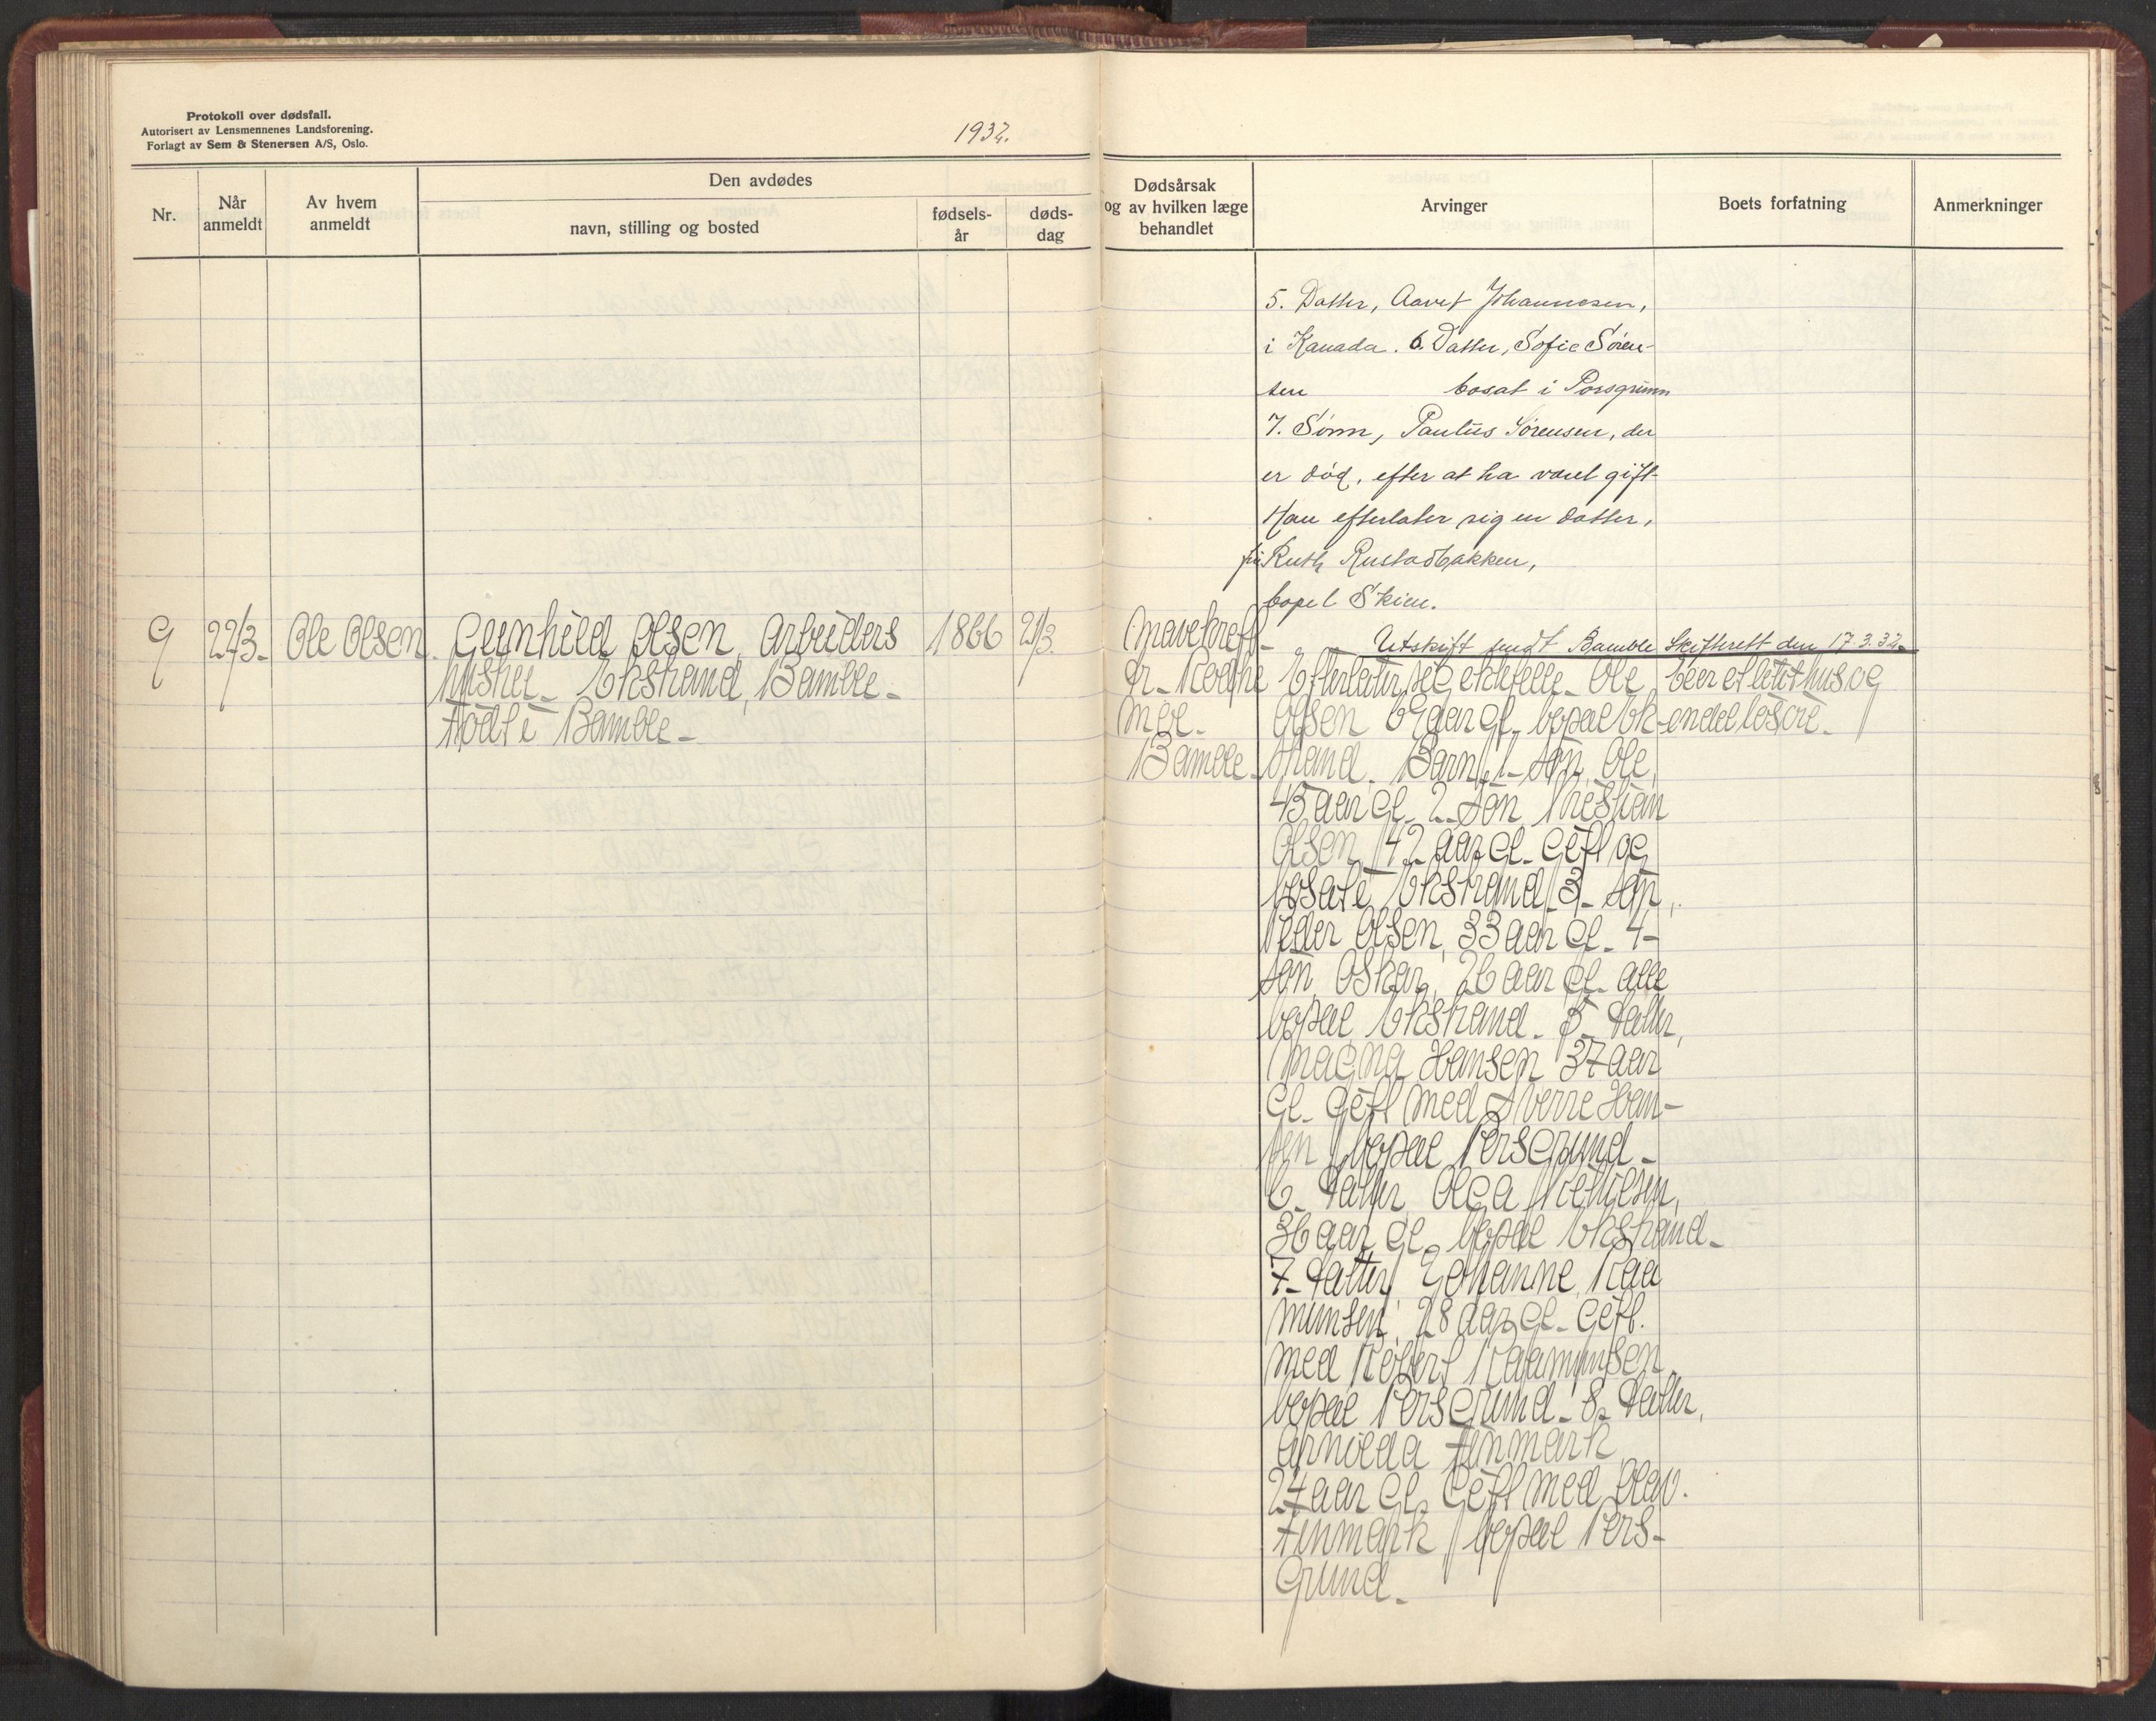 Protokoll over dødsfall.
Autorisert av Lensmennenes Landsforening.
Forlagt av Sem & Stenersen A/S, Oslo.
1932.
Nr.
Når anmeldt
Av hvem anmeldt
Den avdødes
navn, stilling og bosted
fødsels-år
døds-dag
Dødsårsak
og av hvilken læge
behandlet
Arvinger
Boets forfatning
Anmerkninger
5. Datter, Aavet Johannesen,
i Kanada. 6. Datter, Sofie Søren-
sen bosat i Porsgrunn
7. Sønn, Paulus Sørensen, der
er død, efter at ha været gift
Han efterlater sig en datter,
fru Ruth Rustadbakken,
bopel Skien.
Utskrift sendt Bamble Skifterett den 17.3.32.
9
22/3-
Ole Olsen
Gunhild Olsen, Arbeiders
hustru - Ekstrand, Bamble -
Født i Bamble -
1866
21/3
Mavekreft -
Dr. Kogne
Bamble -
Efterlater sig ektefelle - Ole
Olsen 69 aar gl - bopæl Ek-
strand. Barn, 1 - Søn, Ole,
43 aar gl - 2 - Søn Kristian
Olsen, 42 aar gl - Gift og
bosat i Ekstrand, 3 - Søn,
Peder Olsen, 33 aar gl - 4 -
Søn Oskar, 26 aar gl - alle
bopæl Ekstrand - 5 - Datter,
Magna Hansen 37 aar
gl - Gift med Sverre Han-
sen, bopæl Porsgrund -
6 - Datter, Olga
36 aar gl - bopæl Ekstrand -
7 - Datter, Johanne Raa
munsen, 28 aar gl - Gift.
med Robert Raamunsen
bopæl Porsgrund - 8 - Datter,
Arnilda Finmark
24 aar gl - Gift med Olav.
Finmark, bopæl Pors-
Grund -
beer et litet hus og
endel løsøre -